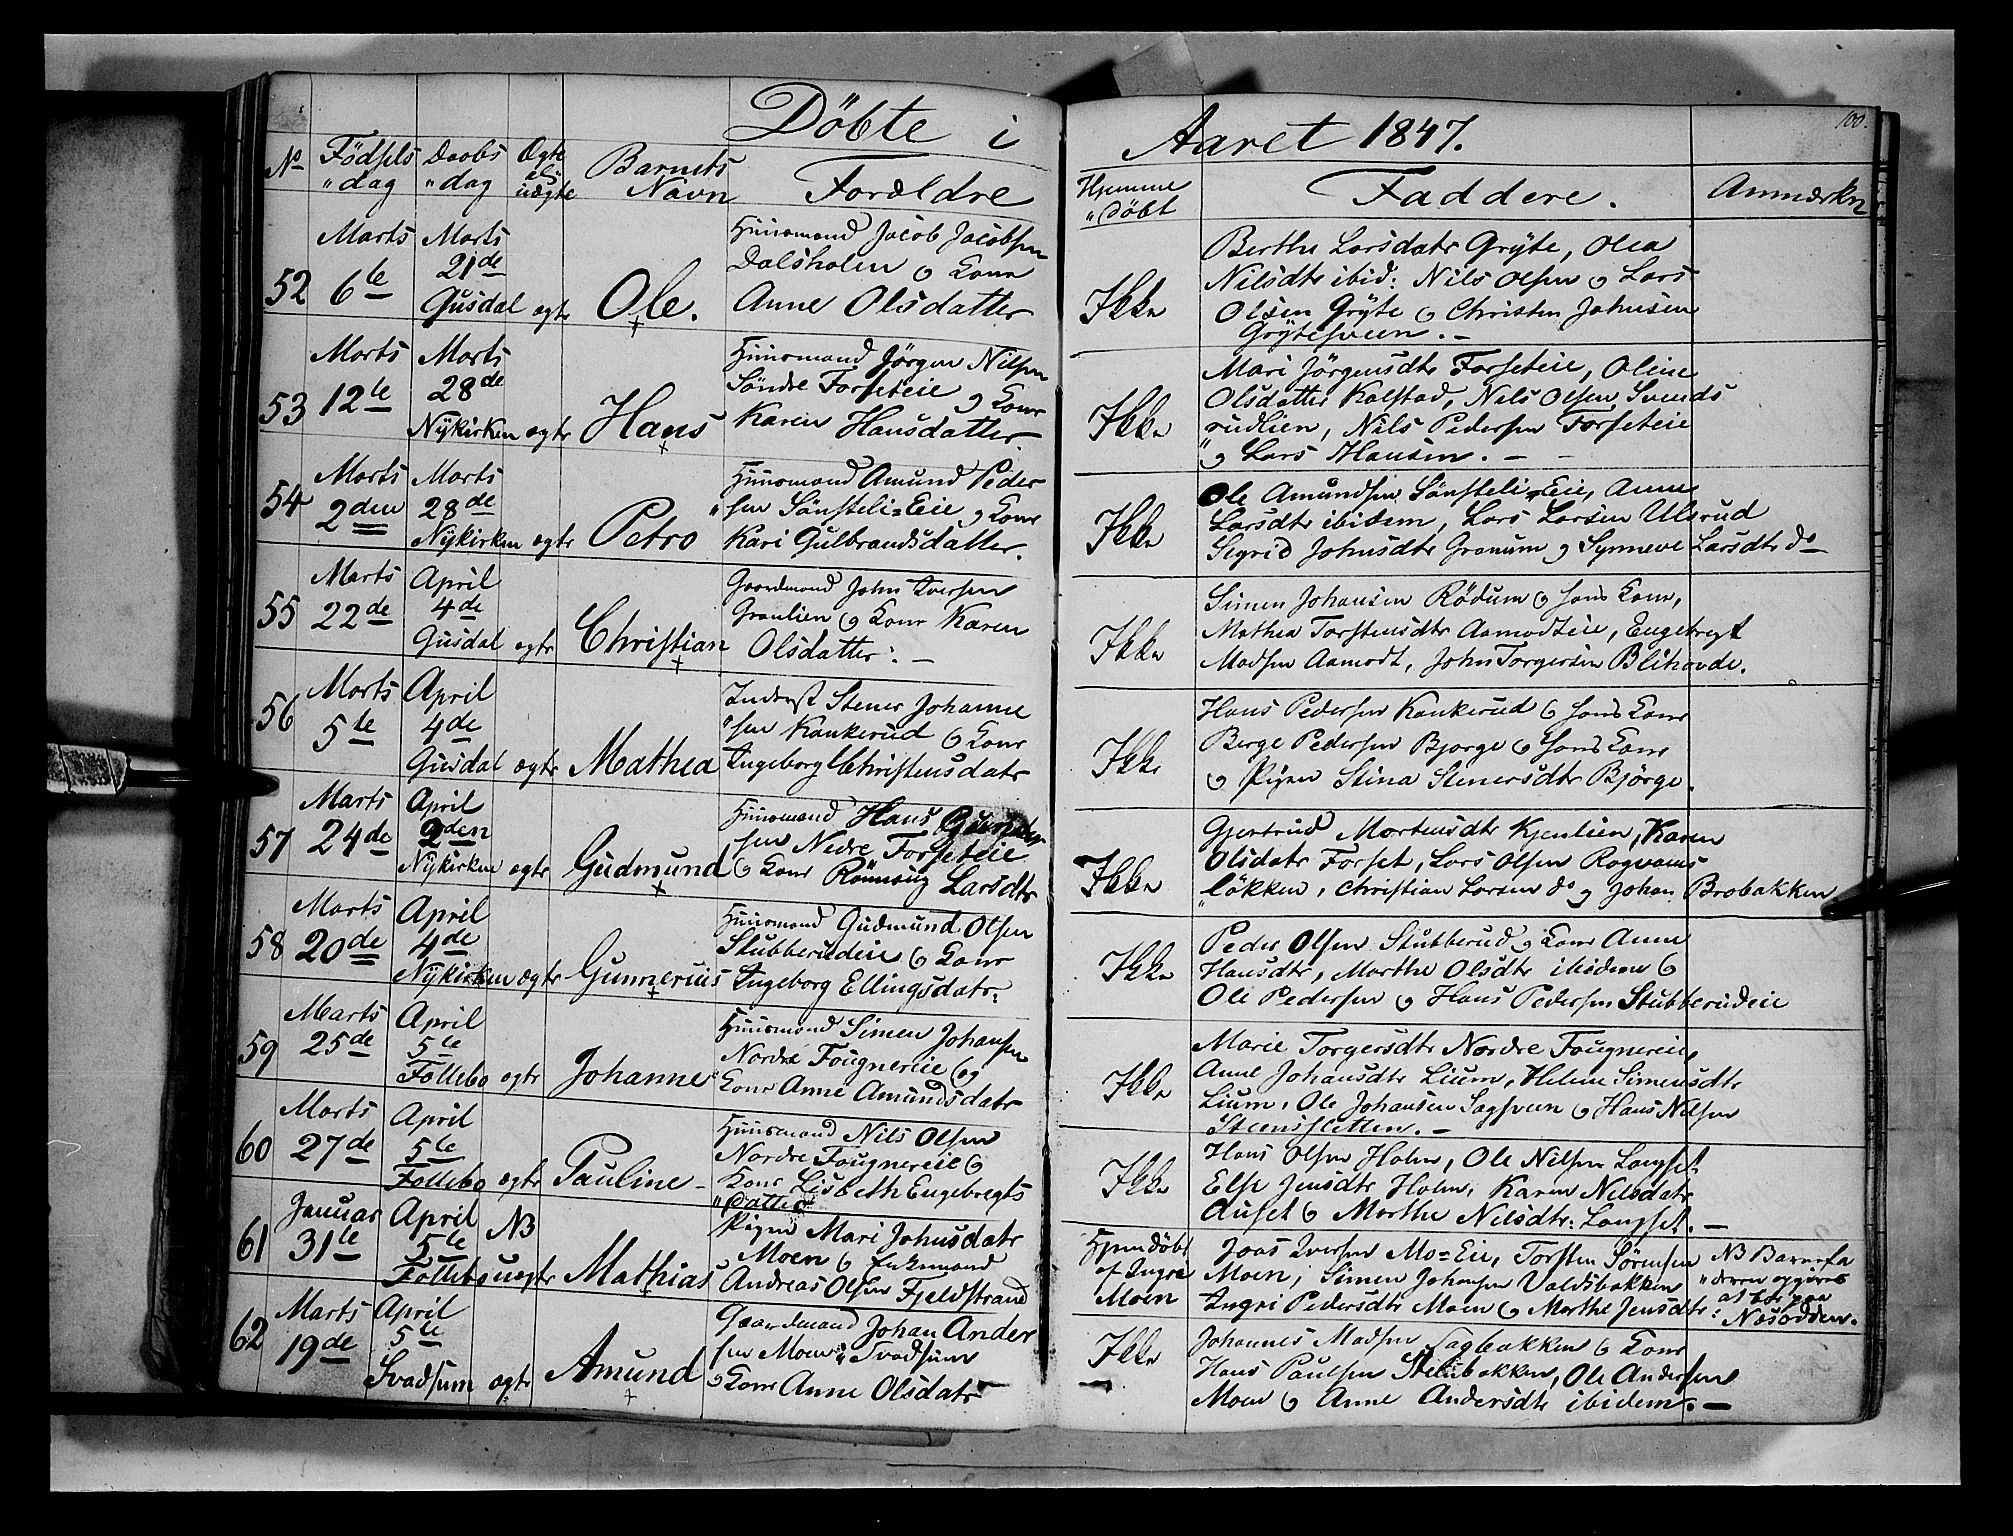 Döbte i Aaret 1847.
100.
No Födsels Daabs Ægte Barnets Forældre Hjemme Faddere. Anmærkn
"dag "dag uægte Navn "döbt
Marts Marts Huusmand Jacob Jacobsen Berthe Larsdatr Gryte, Olea
52 6te 21de Ole. Dalsholen og Kone Ikke Nilsdtr ibid: Nils Olsen og Lars
Gusdal egte Anne Olsdatter Olsen Gryte og Christen Johnsen
Grytesveen. -
Marts Marts Huusmand Jörgen Nilsen Mari Jörgensdtr Forseteie, Oline
53 12te 28de Hans Söndre Forseteie og Kone Ikke Olsdatter Kalstad, Nils Olsen Svends
Nykirken egte Karen Hansdatter. rudlien, Nils Pedersen Forseteie
" og Lars Hansen. -
Marts Marts Huusmand Amund Peder Ole Amundsen Sönsteli=Eie, Anne
54 2den 28de Petro "sen Sönsteli=Eie og Kone Ikke Larsdtr ibidem, Lars Larsen Ulsrud
Nykirken egte Kari Gulbrandsdatter. Sigrid Johnsdtr Granum og Synneve Larsdtr do
Marts April Gaardmand John Iversen Simen Johansen Rödum og hans Kone,
55 22de 4de Christian Graulien og Kone Karen Ikke Mathea Torstensdtr Aamodteie, Engebregt
Gusdal egte Olsdatter. - Madsen Aamodt, John Torgersen Blihovde.
Marts April Inderst Stener Johanne Hans Pedersen Kankerud og hans Kone
56 5te 4de Mathea "sen Kankerud og Kone Ikke Berge Pedersen Bjørge og hans Kone
Gusdal egte Ingeborg Christensdatr og Pigen Stina Stenersdtr Björge.
Marts April Huusmand Hans Gjertrud Mortensdtr Kjenlien, Karen
57 24de 2den Gudmund sen Nedre Forseteie Ikke Olsdatr Forset, Lars Olsen Rognaas
Nykirken egte og Kone Rönnaug Larsdtr "lökken, Christian Larsen do og Johan Brobakken
Marts April Huusmand Gudmund Olsen Peder Olsen Stubberud og Kone Anne
58 20de 4de Gunnerius Stubberudeie og Kone Ikke Hansdtr, Marthe Olsdtr ibidem og
Nykirken egte Ingeborg Ellingsdatr: Ole Pedersen og Hans Pedersen Stubberudeie
Marts April Huusmand Simen Johansen Marie Torgersdtr Nordre Fougnereie,
59 25de 5te Johanne Nordre Fougnereie og Ikke Anne Johansdtr Lium, Helene Simensdtr
Follebo egte Kone Anne Amundsdatr Lium, Ole Johansen Sagsveen og Hans Nilsen
Steensletten. -
Marts April Huusmand Nils Olsen Hans Olsen Holm, Ole Nilsen Longset
60 27de 5te Pauline - Nordre Fougnereie og Ikke Else Jensdtr Holm, Karen Nilsdatr
Follebo egte Kone Lisbeth Engebregts Auset og Marthe Nilsdtr: Longset. -
"datter
Januar April NB Pigen Mari Johnsdatr Hjemdöbt Joas Iversen Mo=Eie, Torsten Sörensen NB Barnefa
61 31te 5te Mathias Moen og Enkemand af Ingri Moen, Simen Johansen Valdsbakken "deren opgives
Follebo uegte Andreas Olsen Fjeldstrand Moen Ingri Pedersdtr Moen og Marthe Jensdtr: at bo paa
Næsodden.
Marts April Gaardmand Johan Ander Johannes Madsen Sagbakken og Kone
62 19de 5te Amund sen Moen i Svadsum Ikke Hans Paulsen Stenbakken, Ole Andersen
Svadsum egte og Kone Anne Olsdatr Moen og Anne Andersdtr ibidem. -